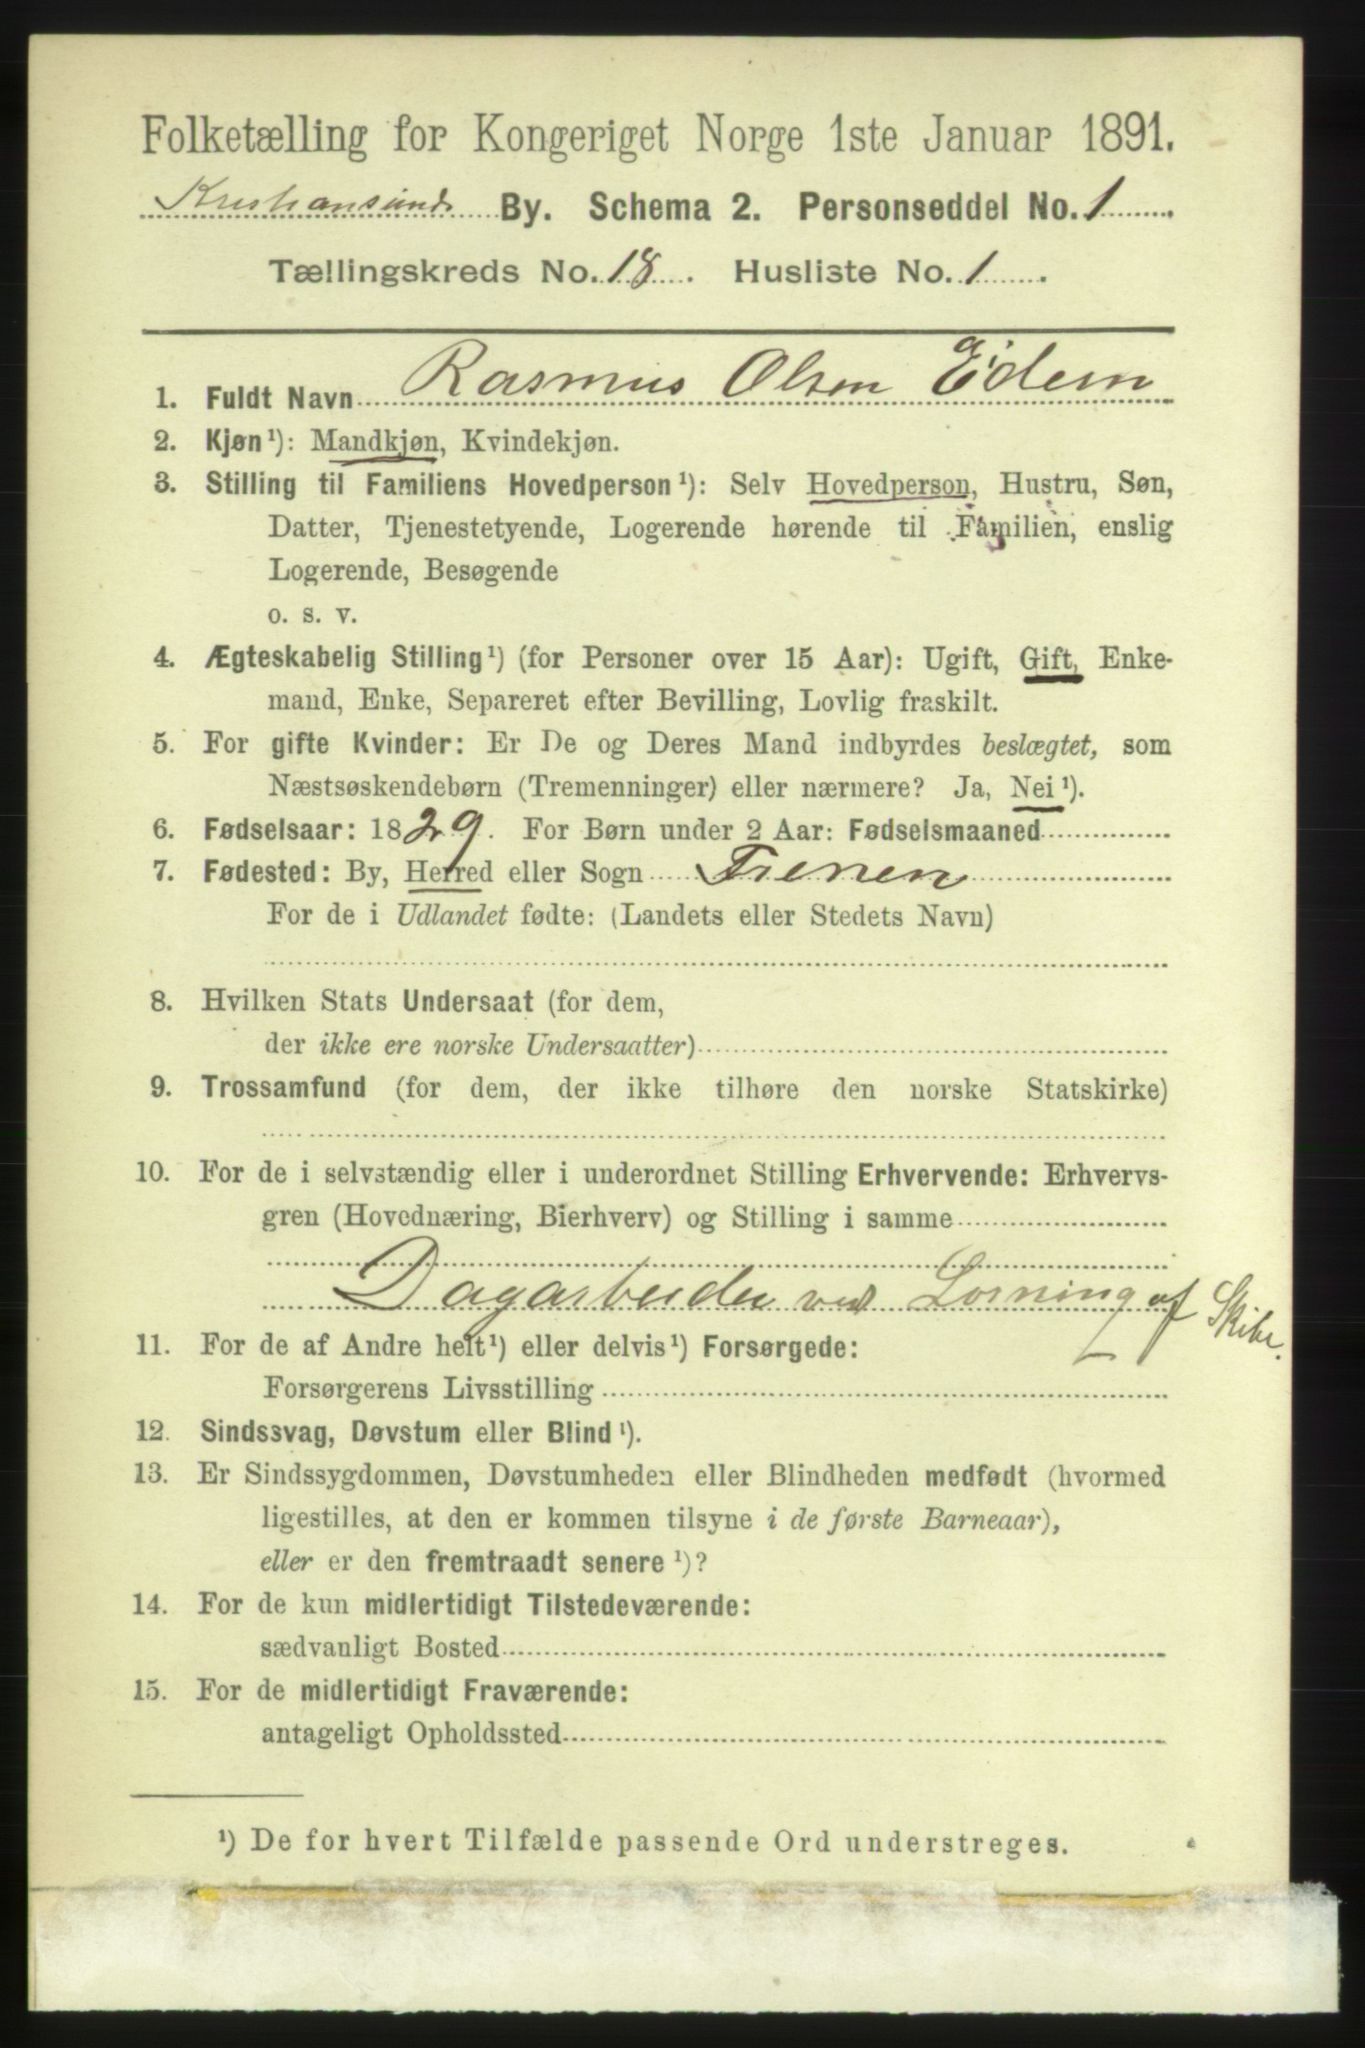 Folketælling for Kongeriget Norge 1ste Januar 1891.
Kristiansunds By. Schema 2. Personseddel No. 1
Tællingskreds No. 18. Husliste No. 1.
1. Fuldt Navn Rasmus Olsen Eidem
2. Kjøn¹): Mandkjøn, Kvindekjøn.
3. Stilling til Familiens Hovedperson¹): Selv Hovedperson, Hustru, Søn,
Datter, Tjenestetyende, Logerende hørende til Familien, enslig
Logerende, Besøgende
o. s. v.
4. Ægteskabelig Stilling¹) (for Personer over 15 Aar): Ugift, Gift, Enke-
mand, Enke, Separeret efter Bevilling, Lovlig fraskilt.
5. For gifte Kvinder: Er De og Deres Mand indbyrdes beslægtet, som
Næstsøskendebørn (Tremenninger) eller nærmere? Ja, Nei¹).
6. Fødselsaar: 1829. For Børn under 2 Aar: Fødselsmaaned
7. Fødested: By, Herred eller Sogn
For de i Udlandet fødte: (Landets eller Stedets Navn)
8. Hvilken Stats Undersaat (for dem,
der ikke ere norske Undersaatter)
9. Trossamfund (for dem, der ikke tilhøre den norske Statskirke)
10. For de i selvstændig eller i underordnet Stilling Erhvervende: Erhvervs-
gren (Hovednæring, Bierhverv) og Stilling i samme
Dagarbeider ved Losning af Skibe.
11. For de af Andre helt¹) eller delvis¹) Forsørgede:
Forsørgerens Livsstilling
12. Sindssvag, Døvstum eller Blind¹).
13. Er Sindssygdommen, Døvstumheden eller Blindheden medfødt (hvormed
ligestilles, at den er kommen tilsyne i de første Barneaar),
eller er den fremtraadt senere¹)?
14. For de kun midlertidigt Tilstedeværende:
sædvanligt Bosted
15. For de midlertidigt Fraværende:
antageligt Opholdssted
¹) De for hvert Tilfælde passende Ord understreges.